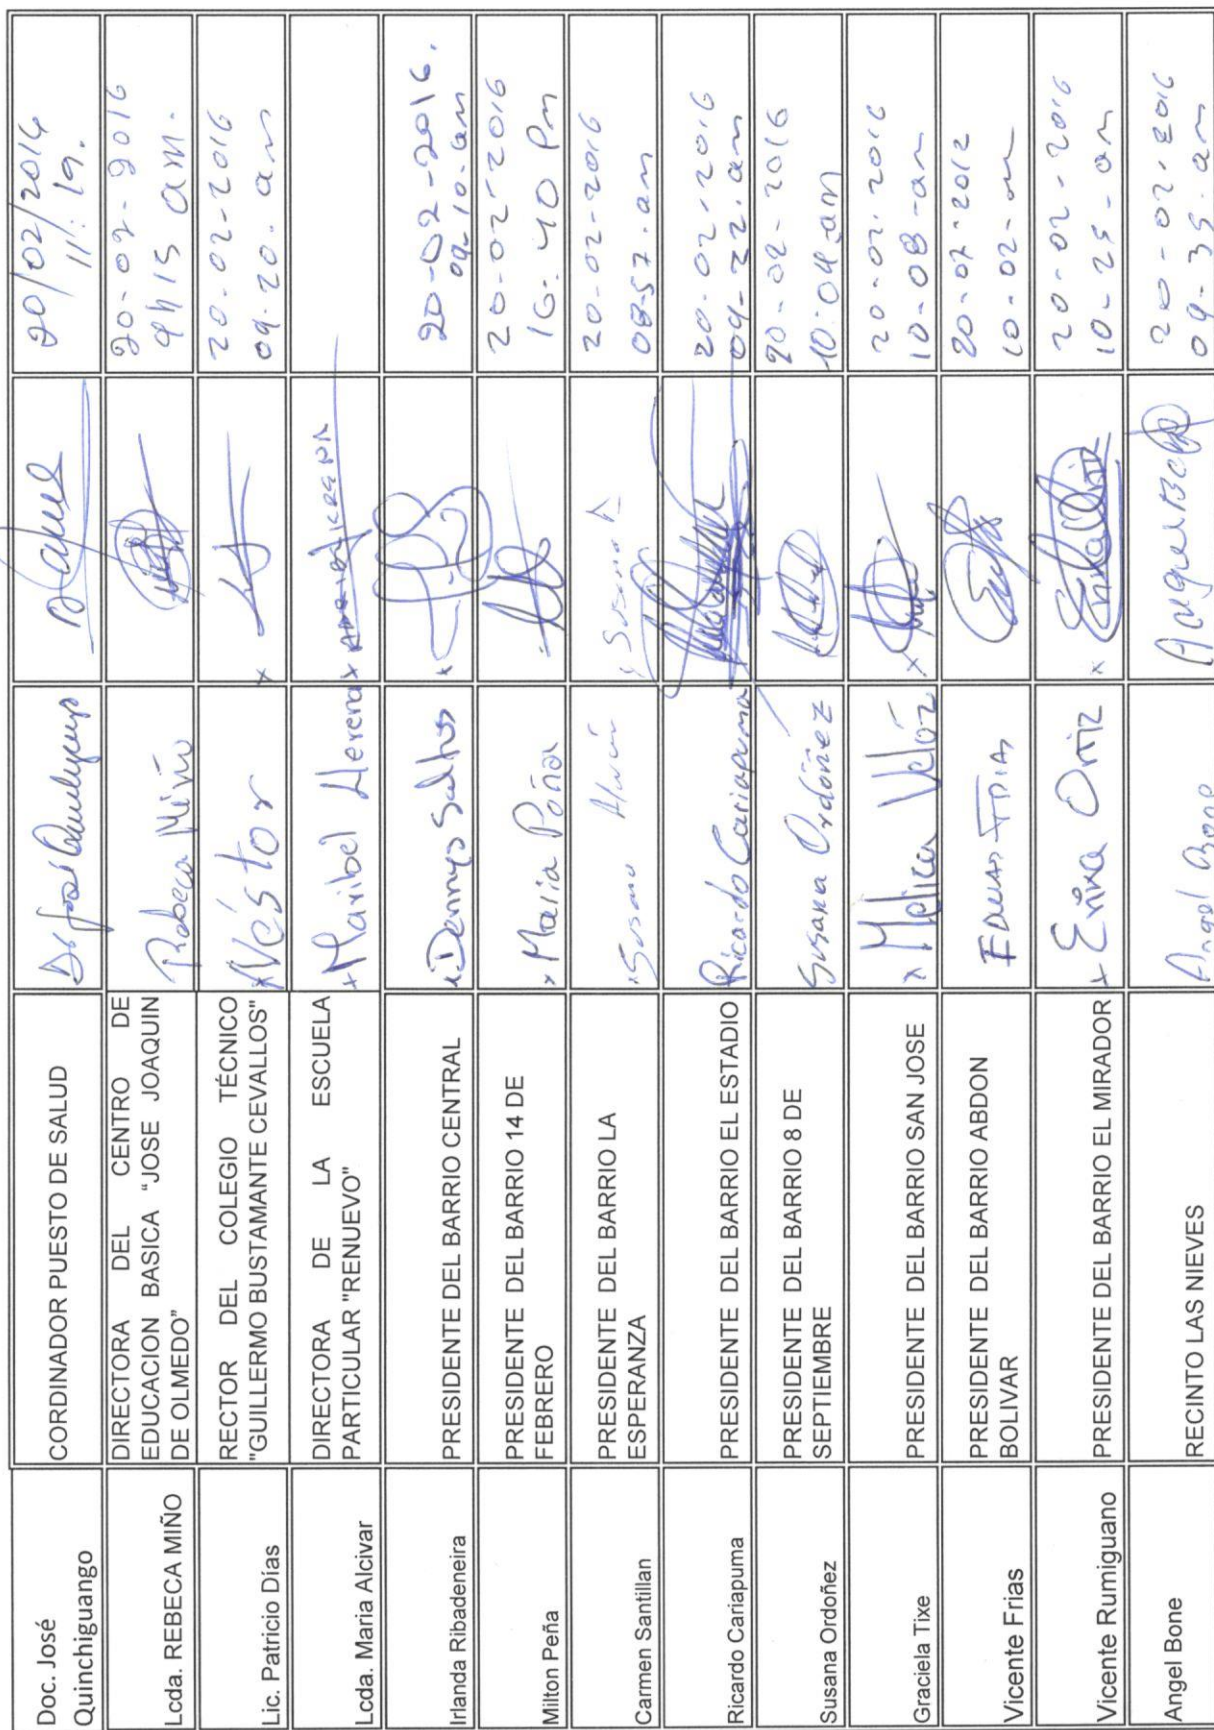 Doc. José
Quinchiguango
CORDINADOR PUESTO DE SALUD
Dr José Quinchiguango
20/02/2016
11:19.
Lcda. REBECA MIÑO
DIRECTORA DEL CENTRO DE
EDUCACION BASICA “JOSE JOAQUIN
DE OLMEDO”
Rebeca Miño
20-02-2016
9h15 am.
Lic. Patricio Días
RECTOR DEL COLEGIO TÉCNICO
"GUILLERMO BUSTAMANTE CEVALLOS"
x Néstor
x
20-02-2016
09-20. am
Lcda. Maria Alcivar
DIRECTORA DE LA ESCUELA
PARTICULAR "RENUEVO"
x Maribel Herera
x
Irlanda Ribadeneira
PRESIDENTE DEL BARRIO CENTRAL
x Dennys Saltos
x
20-02-2016.
09-10-am
Milton Peña
PRESIDENTE DEL BARRIO 14 DE
FEBRERO
x Maria Poña
x
20-02-2016
16-40 Pm
Carmen Santillan
PRESIDENTE DEL BARRIO LA
ESPERANZA
Susana
Susana A
20-02-2016
08-57.am
Ricardo Cariapuma
PRESIDENTE DEL BARRIO EL ESTADIO
Ricardo Cariapuma
20-02-2016
09-32.am
Susana Ordoñez
PRESIDENTE DEL BARRIO 8 DE
SEPTIEMBRE
Susana Ordóñez
20-02-2016
10:04 am
Graciela Tixe
PRESIDENTE DEL BARRIO SAN JOSE
x Melica Velóz
x
20-02-2016
10-08-am
Vicente Frias
PRESIDENTE DEL BARRIO ABDON
BOLIVAR
20-02-2012
10-02-am
Vicente Rumiguano
PRESIDENTE DEL BARRIO EL MIRADOR
x Erika Ortiz
x
20-02-2016
10-25-am
Angel Bone
RECINTO LAS NIEVES
Angel Bone
Angel Bone
20-02-2016
09-35.am